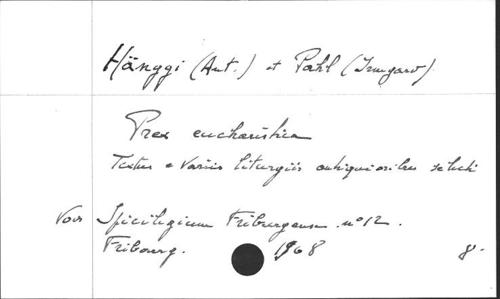 Hänggi (Ant.) et Pahl (Irmgard)
Prex eucharistica
Textus e variis liturgiis antiquioribus selecti
Voir Spicilegium Friburgense n° 12.
Fribourg. 1968 8°